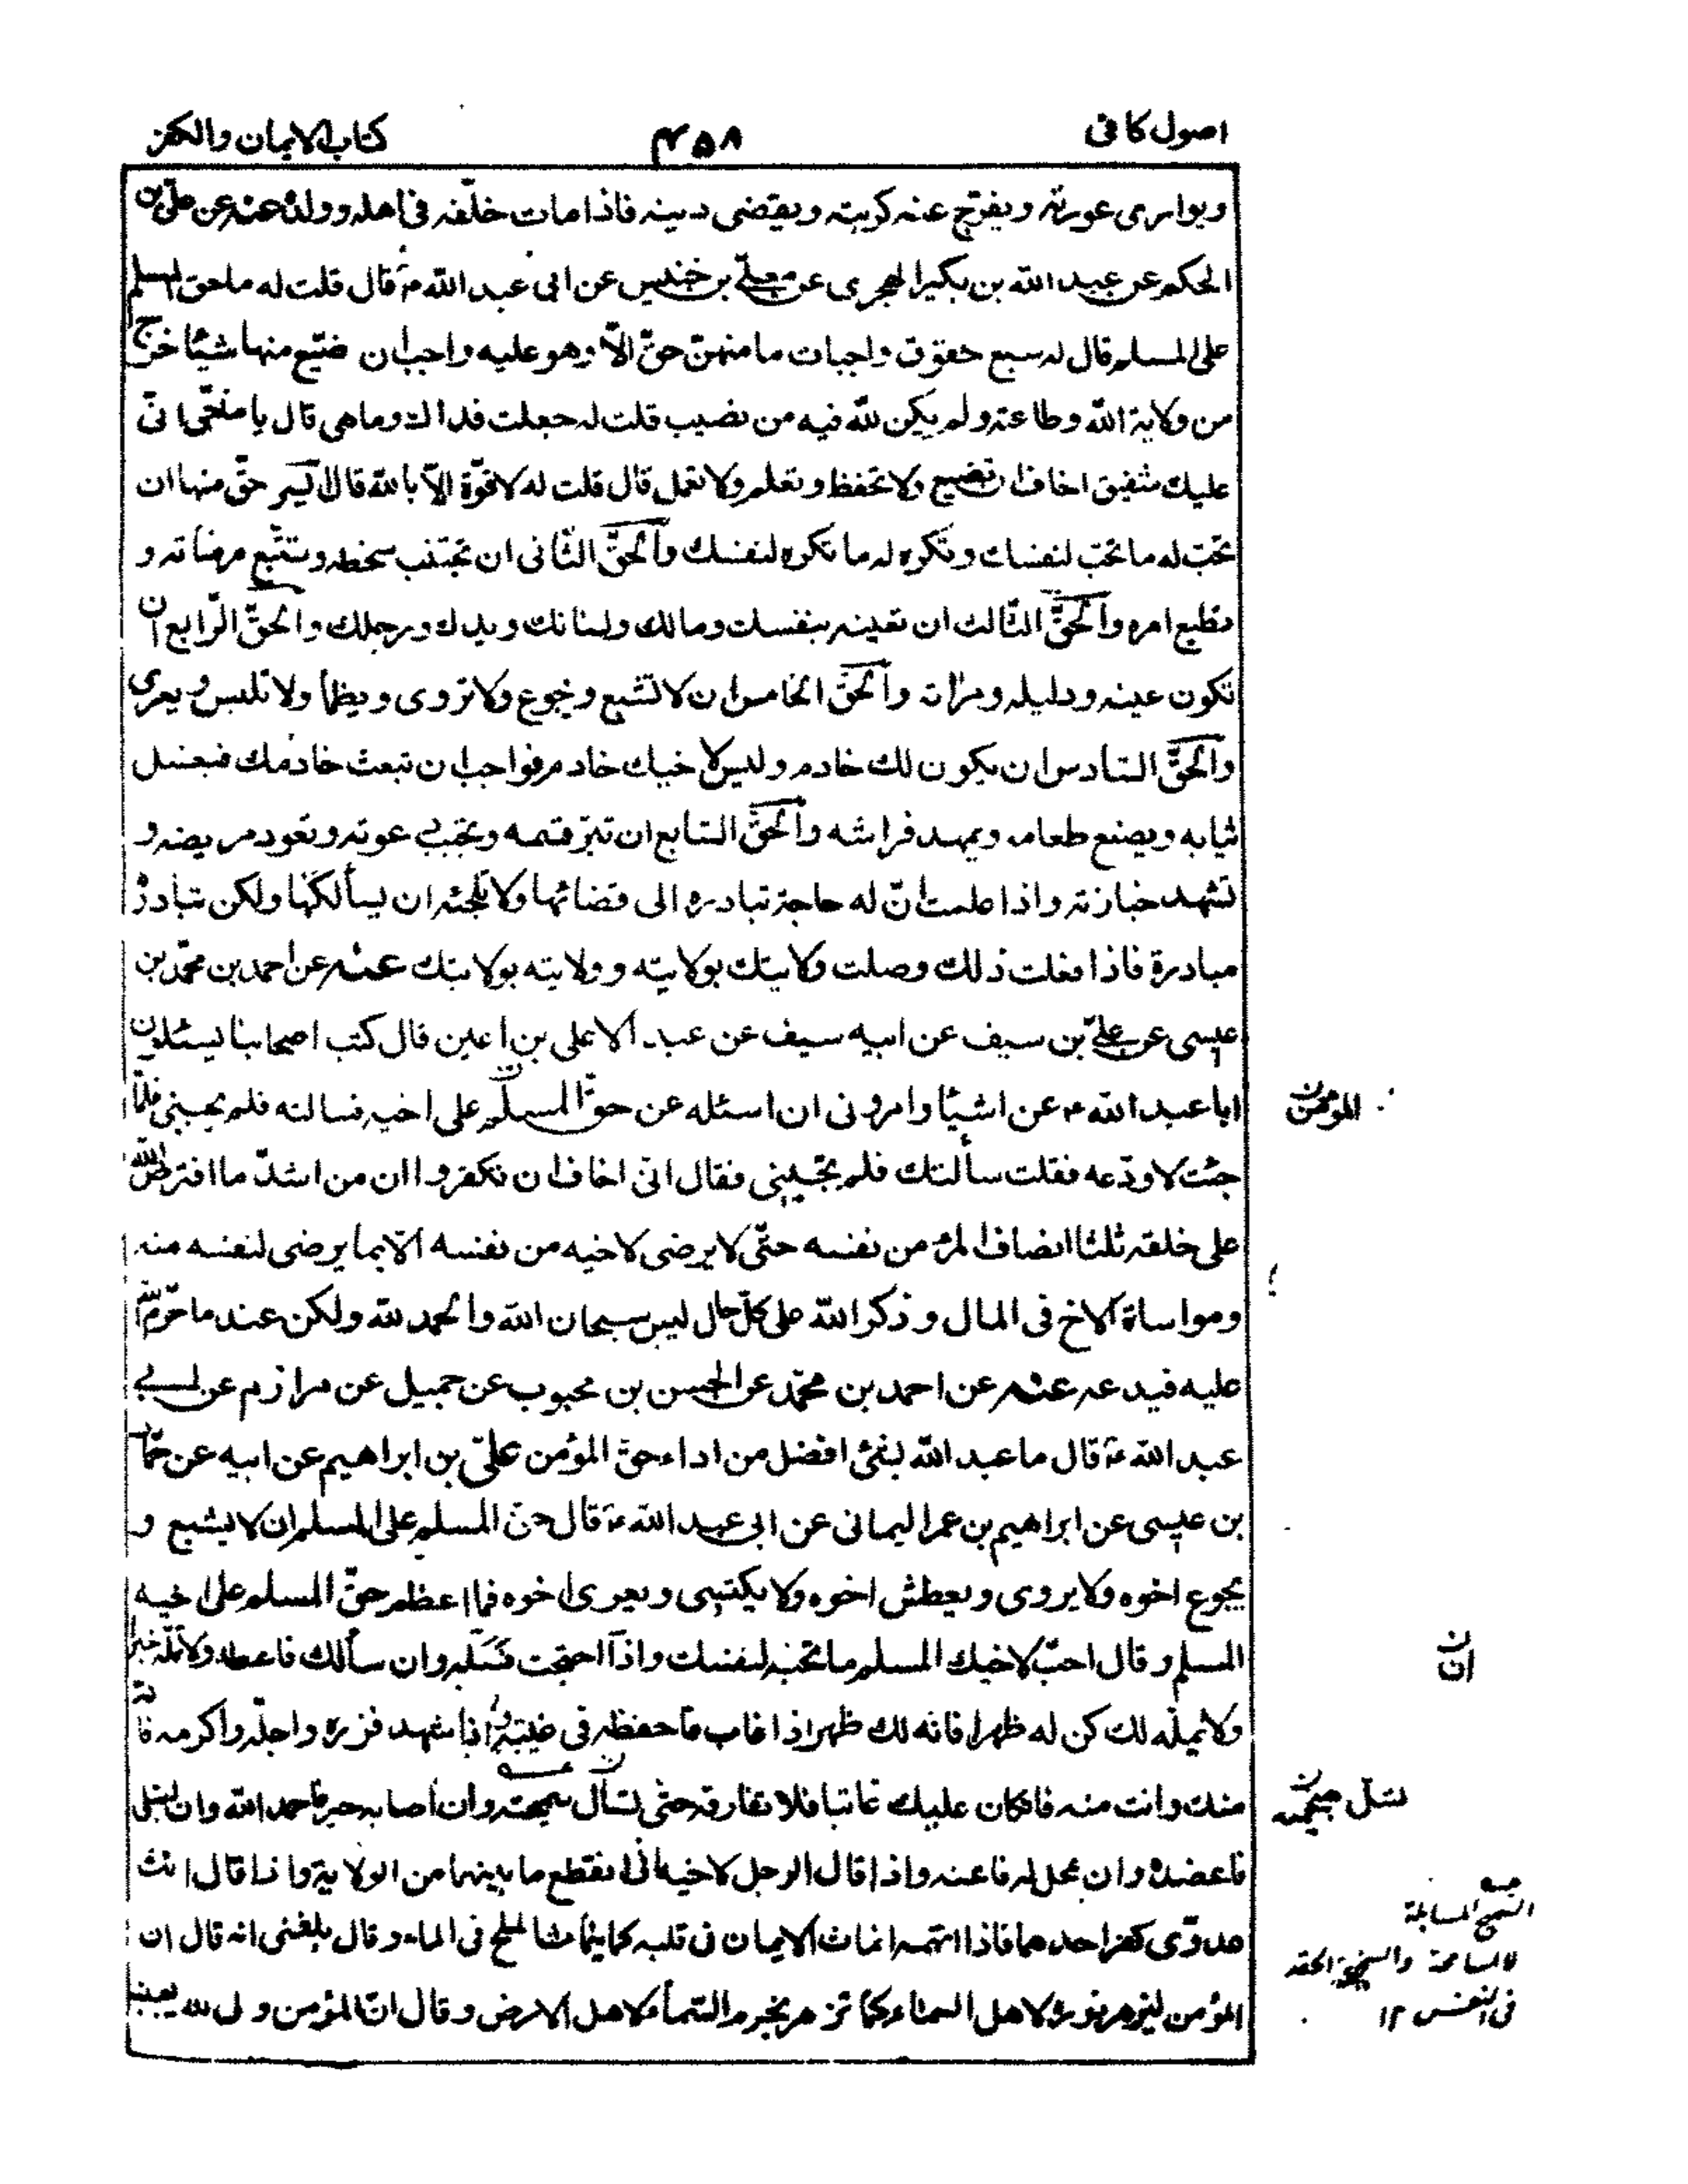 اصول كافى
۴۵۸
كتاب الايمان والكفر
ويوارى عورته ويفرّج عنه كربته ويقضى دينه فاذا مات خلّفه فى اهله وولده عنه عن علىّ بن
الحكم عن عبد الله بن بكير الهجرى عن معلّى بن خنيس عن ابى عبد الله ع قال قلت له ما حق المسلم
على المسلم قال له سبع حقوق واجبات ما منهنّ حقّ الّا وهو عليه واجب ان ضيّع منها شيئًا خرج
من ولاية الله وطاعته ولم يكن لله فيه من نصيب قلت له جعلت فداك وما هى قال يا معلّى انّى
عليك شفيق اخاف ان تضيع ولا تحفظ وتعلم ولا تعمل قال قلت له لا قوّة الّا بالله قال ايسر حقّ منها ان
تحبّ له ما تحبّ لنفسك وتكره له ما تكره لنفسك والحقّ الثّانى ان تجتنب سخطه وتتّبع مرضاته و
تطيع امره والحقّ الثّالث ان تعينه بنفسك ومالك ولسانك ويدك ورجلك والحقّ الرّابع ان
تكون عينه ودليله ومرآته والحقّ الخامس ان لا تشبع ويجوع ولا تروى ويظمأ ولا تلبس ويعرى
والحقّ السّادس ان يكون لك خادم وليس لاخيك خادم فواجب ان تبعث خادمك فيغسل
ثيابه ويصنع طعامه ويمهد فراشه والحقّ السّابع ان تبرّ قسمه وتجيب دعوته وتعود مريضه و
تشهد جنازته واذا علمت انّ له حاجة تبادره الى قضائها ولا تلجئه ان يسألكها ولكن تبادره
مبادرة فاذا فعلت ذلك وصلت ولايتك بولايته وولايته بولايتك عنه عن احمد بن محمّد بن
عيسى عن علىّ بن سيف عن ابيه سيف عن عبد الاعلى بن اعين قال كتب اصحابنا يسئلون
ابا عبد الله ع عن اشياء وامرونى ان اسئله عن حقّ المسلم على اخيه فسالته فلم يجبنى فلمّا
المؤمن
جئت لاودّعه فقلت سألتك فلم تجبنى فقال انّى اخاف ان تكفروا ان من اشدّ ما افترض الله
على خلقه ثلثا انصاف المرء من نفسه حتّى لا يرضى لاخيه من نفسه الّا بما يرضى لنفسه منه
ومواساة الاخ فى المال وذكر الله على كلّ حال ليس سبحان الله والحمد لله ولكن عند ما حرّم الله
عليه فيدعه عنه عن احمد بن محمّد عن الحسن بن محبوب عن جميل عن مرازم عن ابى
عبد الله ع قال ما عبد الله بشئ افضل من اداء حق المؤمن علىّ بن ابراهيم عن ابيه عن حمّاد
بن عيسى عن ابراهيم بن عمر اليمانى عن ابى عبد الله ع قال حقّ المسلم على المسلم ان لا يشبع و
يجوع اخوه ولا يروى ويعطش اخوه ولا يكتسى ويعرى اخوه فما اعظم حقّ المسلم على اخيه
المسلم وقال احبّ لاخيك المسلم ما تحبّه لنفسك واذا احتجت فسله وان سألك فاعطه ولا تملّه خيرا
ان
ولا يملّه لك كن له ظهرا فانه لك ظهر اذا غاب فاحفظه فى غيبته واذا شهد فزره واجلّه واكرمه فانه
منك وانت منه فان كان عليك عاتبا فلا تفارقه حتّى تسأل سميحته وان اصابه خير فاحمد الله وان ابتلى
فاعضده وان تمحل له فاعنه واذا قال الرجل لاخيه افّ انقطع ما بينهما من الولاية واذا قال انت
عدوّى كفر احدهما فاذا اتّهمه انماث الايمان فى قلبه كما ينماث الملح فى الماء وقال بلغنى انه قال ان
المؤمن ليزهر نوره لاهل السماء كما تزهر نجوم السّماء لاهل الارض وقال انّ المؤمن ولى لله يعينه
فى النفس ۱۲